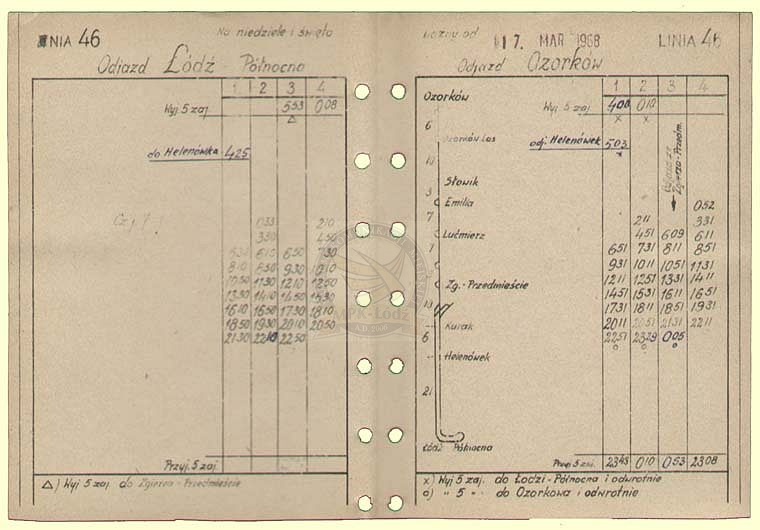 LINIA 46 Na niedziele i święta
Odjazd Łódź Północna
1 2 3 4
Wyj 5 zaj. 5 53 0 08
△
do Helenówka 4 25
1 33 2 10
3 30 4 50
5 30 6 10 6 50 7 30
8 10 8 50 9 30 10 10
10 50 11 30 12 10 12 50
13 30 14 10 14 50 15 30
16 10 16 50 17 30 18 10
18 50 19 30 20 10 20 50
21 30 22 10 22 50
Przyj. 5 zaj.
△) Wyj 5 zaj. do Zgierza-Przedmieście
Ważny od 17. MAR 1968 LINIA 46
Odjazd Ozorków
1 2 3 4
Ozorków
Wyj 5 zaj 4 08 0 10
x x
6
Ozorków Las
odj. Helenówek 5 03
Zgierza-Przedm.
Słowik
3
Emilia
0 52
7
2 11 3 31
Lućmierz
4 51 6 09 6 11
7
6 51 7 31 8 11 8 51
9 31 10 11 10 51 11 31
Zg.-Przedmieście
12 11 12 51 13 31 14 11
14 51 15 31 16 11 16 51
13
17 31 18 11 18 51 19 31
Kurak
20 11 20 51 21 31 22 11
6
22 51 23 29 0 05
o o o
Helenówek
21
Łódź Północna
Przyj 5 zaj. 23 43 0 10 0 53 23 08
x) Wyj 5 zaj. do Łodzi-Północna i odwrotnie
o) " 5 " do Ozorkowa i odwrotnie
MPK-Łódź